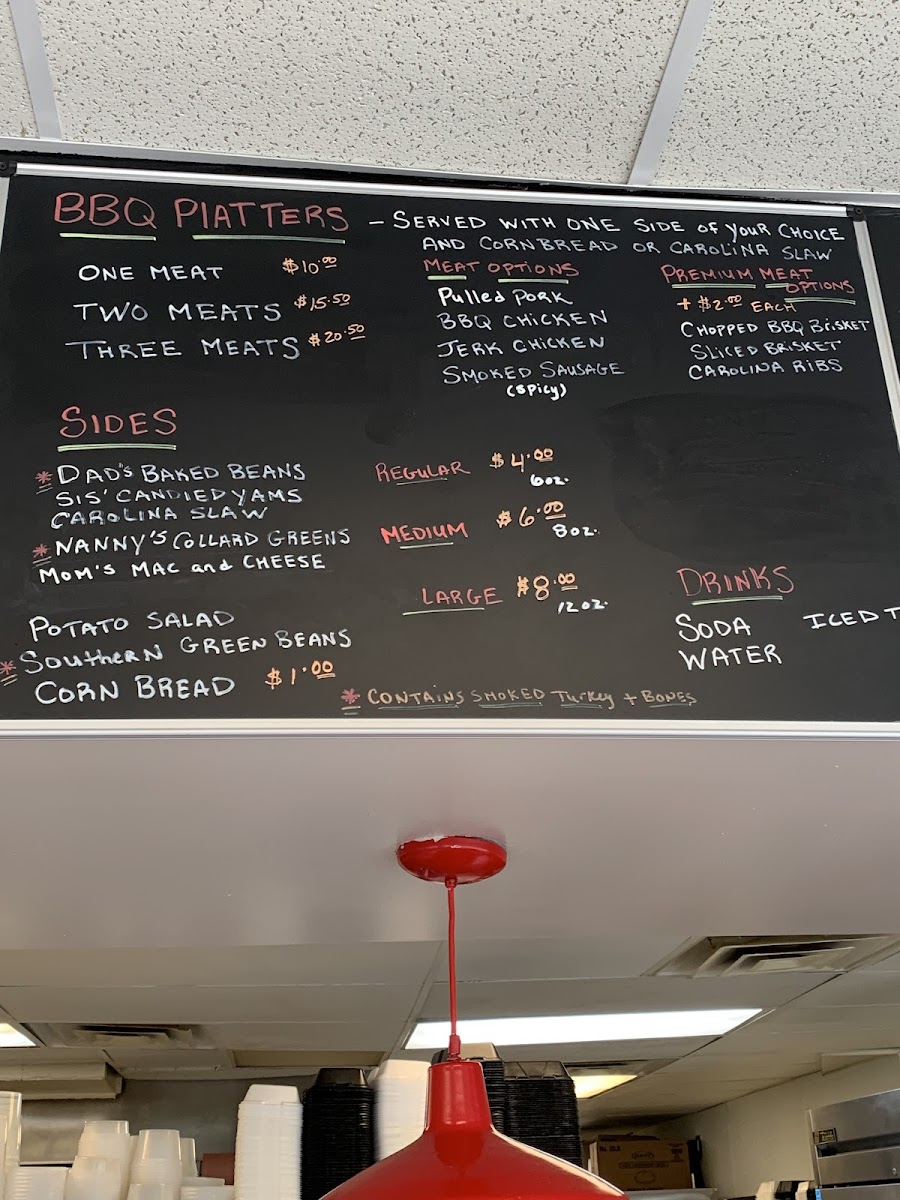 BBQ PLATTERS - SERVED WITH ONE SIDE OF YOUR CHOICE
AND CORNBREAD OR CAROLINA SLAW
ONE MEAT $10.00
TWO MEATS $15.50
THREE MEATS $20.50
MEAT OPTIONS
Pulled Pork
BBQ CHICKEN
JERK CHICKEN
SMOKED SAUSAGE
(SPicy)
PREMIUM MEAT
OPTIONS
+ $2.00 EACH
CHOPPED BBQ BRISKET
SLICED BRISKET
CAROLINA RIBS
SIDES
* DAD'S BAKED BEANS
SIS' CANDIED YAMS
CAROLINA SLAW
* NANNY'S COLLARD GREENS
MOM'S MAC and CHEESE
POTATO SALAD
* SOUTHERN GREEN BEANS
CORN BREAD $1.00
REGULAR $4.00
6oz.
MEDIUM $6.00
8oz.
LARGE $8.00
12oz.
DRINKS
SODA ICED T
WATER
* CONTAINS SMOKED Turkey + BONES